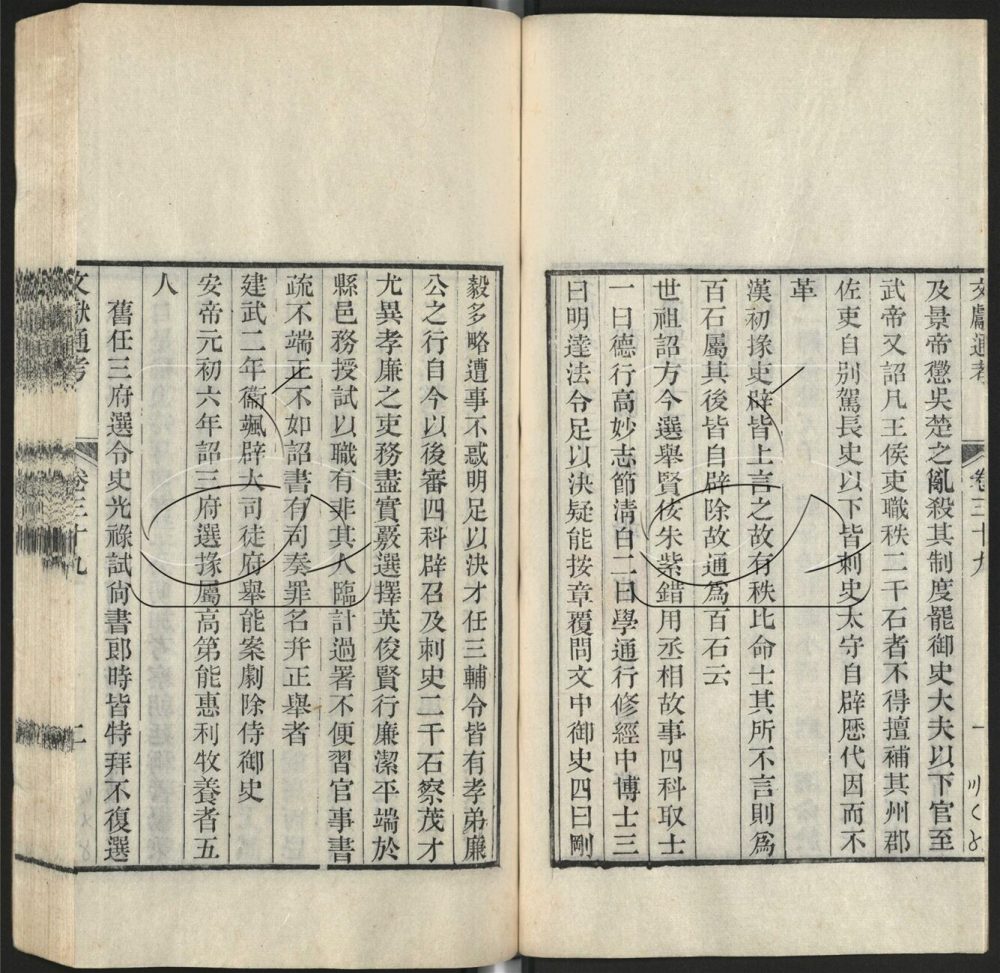 文獻通考 卷三十九 一
及景帝懲吳楚之亂殺其制度罷御史大夫以下官至
武帝又詔凡王侯吏職秩二千石者不得擅補其州郡
佐吏自别駕長史以下皆刺史太守自辟歴代因而不
革
漢初掾吏辟皆上言之故有秩比命士其所不言則爲
百石屬其後皆自辟除故通爲百石云
世祖詔方今選舉賢佞朱紫錯用丞相故事四科取士
一曰德行高妙志節淸白二曰學通行修經中博士三
曰明達法令足以决疑能按章覆問文中御史四曰剛
毅多略遭事不惑明足以决才任三輔令皆有孝弟廉
公之行自今以後審四科辟召及刺史二千石察茂才
尤異孝廉之吏務盡實覈選擇英俊賢行廉潔平端於
縣邑務授試以職有非其人臨計過署不便習官事書
疏不端正不如詔書有司奏罪名并正舉者
建武二年衞颯辟大司徒府舉能案劇除侍御史
安帝元初六年詔三府選掾屬高第能惠利牧養者五
人
舊任三府選令史光祿試尙書郎時皆特拜不復選
文獻通考 卷三十九 二